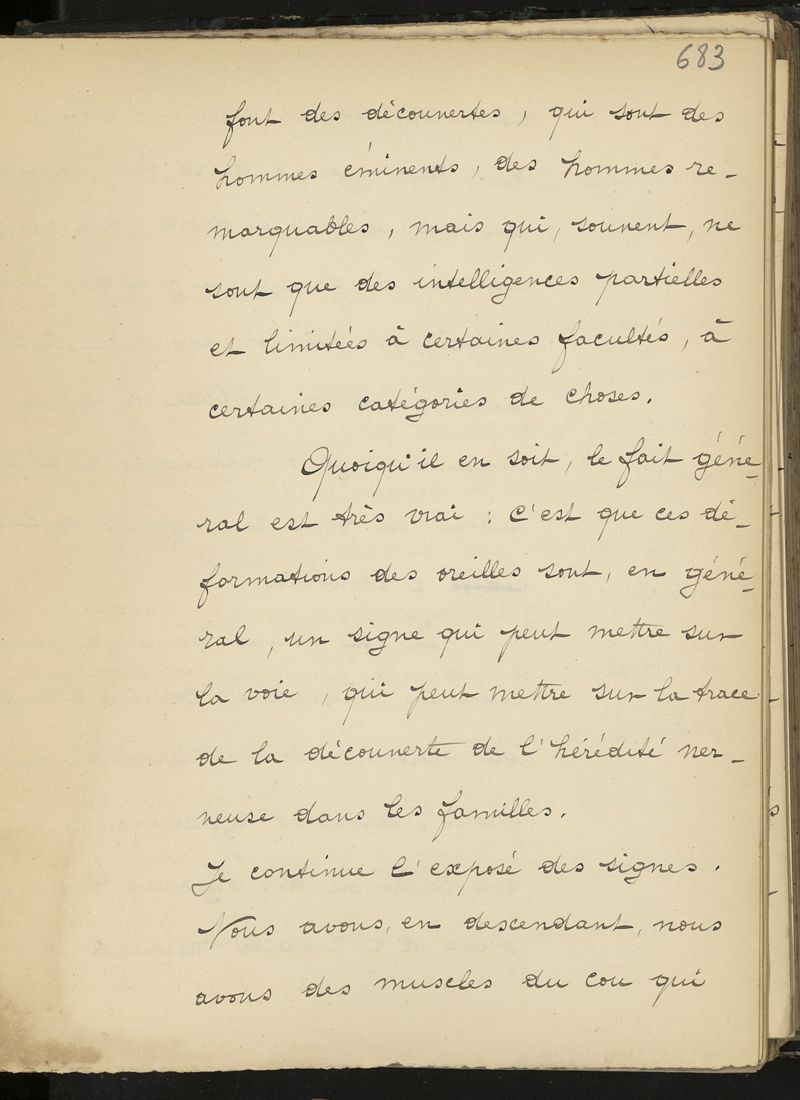 683
font des découvertes, qui sont des
hommes éminents, des hommes re-
marquables, mais qui, souvent, ne
sont que des intelligences partielles
et limitées à certaines facultés, à
certaines catégories de choses.
Quoiqu'il en soit, le fait géné-
ral est très vrai : c'est que ces dé-
formations des oreilles sont, en géné-
ral, un signe qui peut mettre sur
la voie, qui peut mettre sur la trace
de la découverte de l'hérédité ner-
veuse dans les familles.
Je continue l'exposé des signes.
Nous avons, en descendant, nous
avons des muscles du cou qui